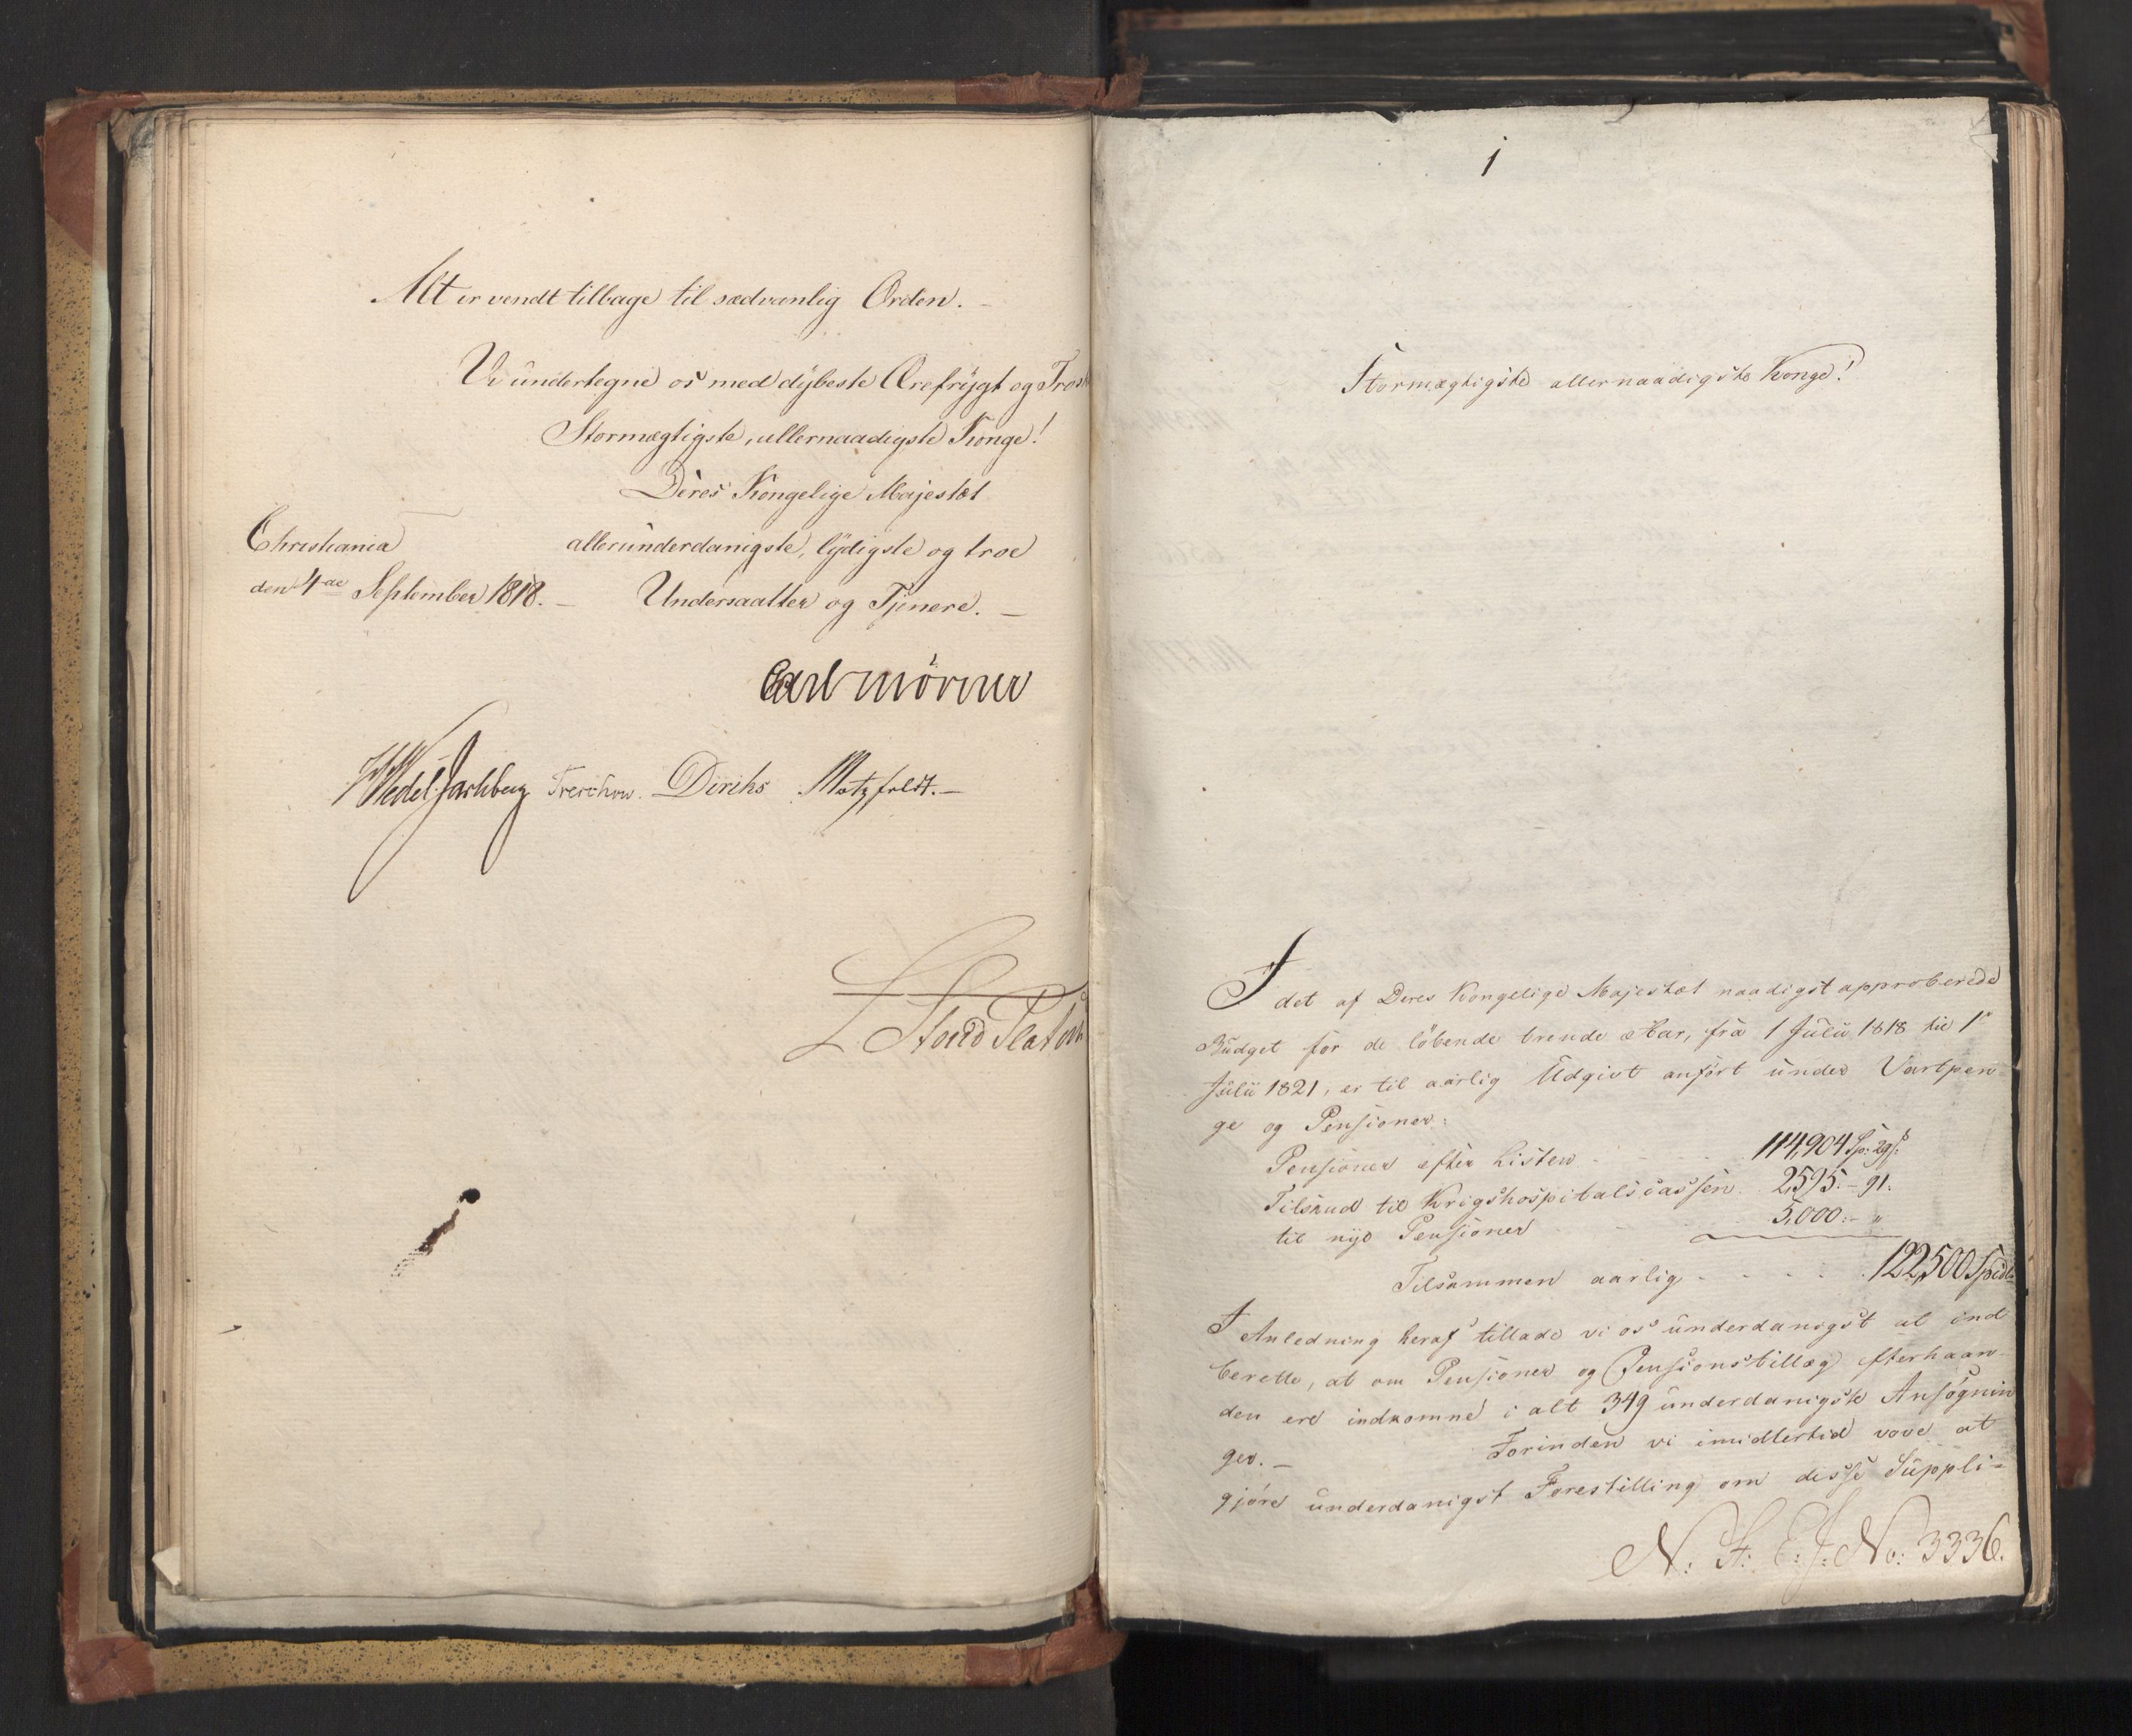 Alt er vendt tilbage til sædvanlig Orden. –
Vi undertegne os med dybeste Ærefrygt og
Stormægtigste, allernaadigste Konge!
Deres Kongelige Majestæt
Christiania
allerunderdanigste, lydigste og troe
den 4de September 1818. –
Undersaatter og Tjenere. –
Carl Mörner
HWedel Jarlsberg Treschow. Diriks Motzfeldt. –
L Stoud Platou
1
Stormægtigste allernaadigste Konge!
I det af Deres Kongelige Majestæt naadigst approberede
Budget for de löbende trende Aar, fra 1 Julii 1818 til 1
Julii 1821, er til aarlig Udgivt anfört under Vartpen=
ge og Pensioner:
Pensioner efter Listen - - - - 114,904 Sp: 29 ß:
Tilskud til Krigshospitalscassen 2,595. – 91.
til nye Pensioner 5,000: – "
Tilsammen aarlig - - - - 122,500 Spdlr
I Anledning heraf tillade vi os underdanigst at ind
berette, at om Pensioner og Pensionstillæg efterhaan-
den ere indkomne i alt 349 underdanigste Ansögnin
ger. – Forinden vi imidlertid vove at
gjöre underdanigst Forestilling om disse Suppli=
N: F: E: J: No: 3336.